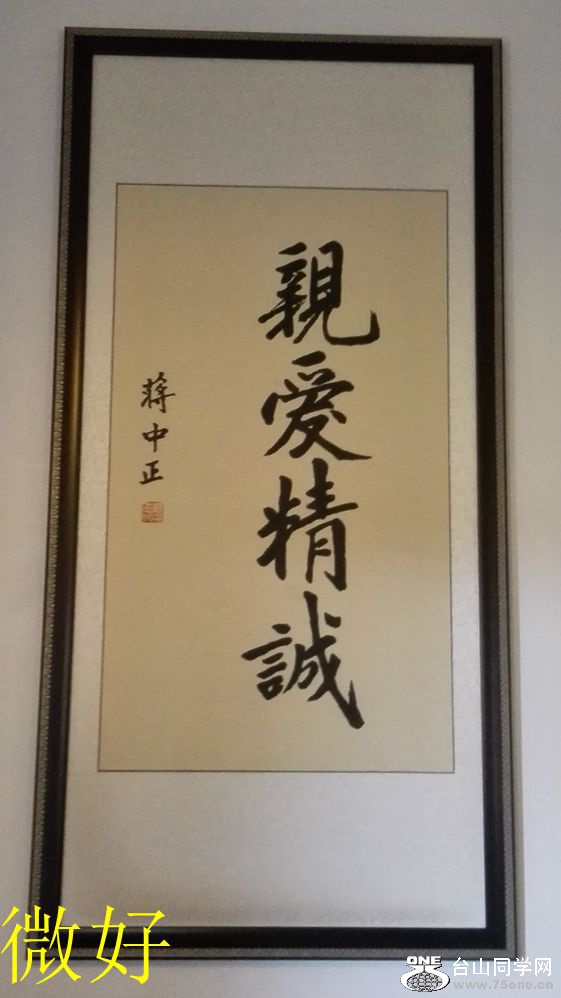 親愛精誠
蔣中正
微好
ONE
台山同学网
www.75one.cn